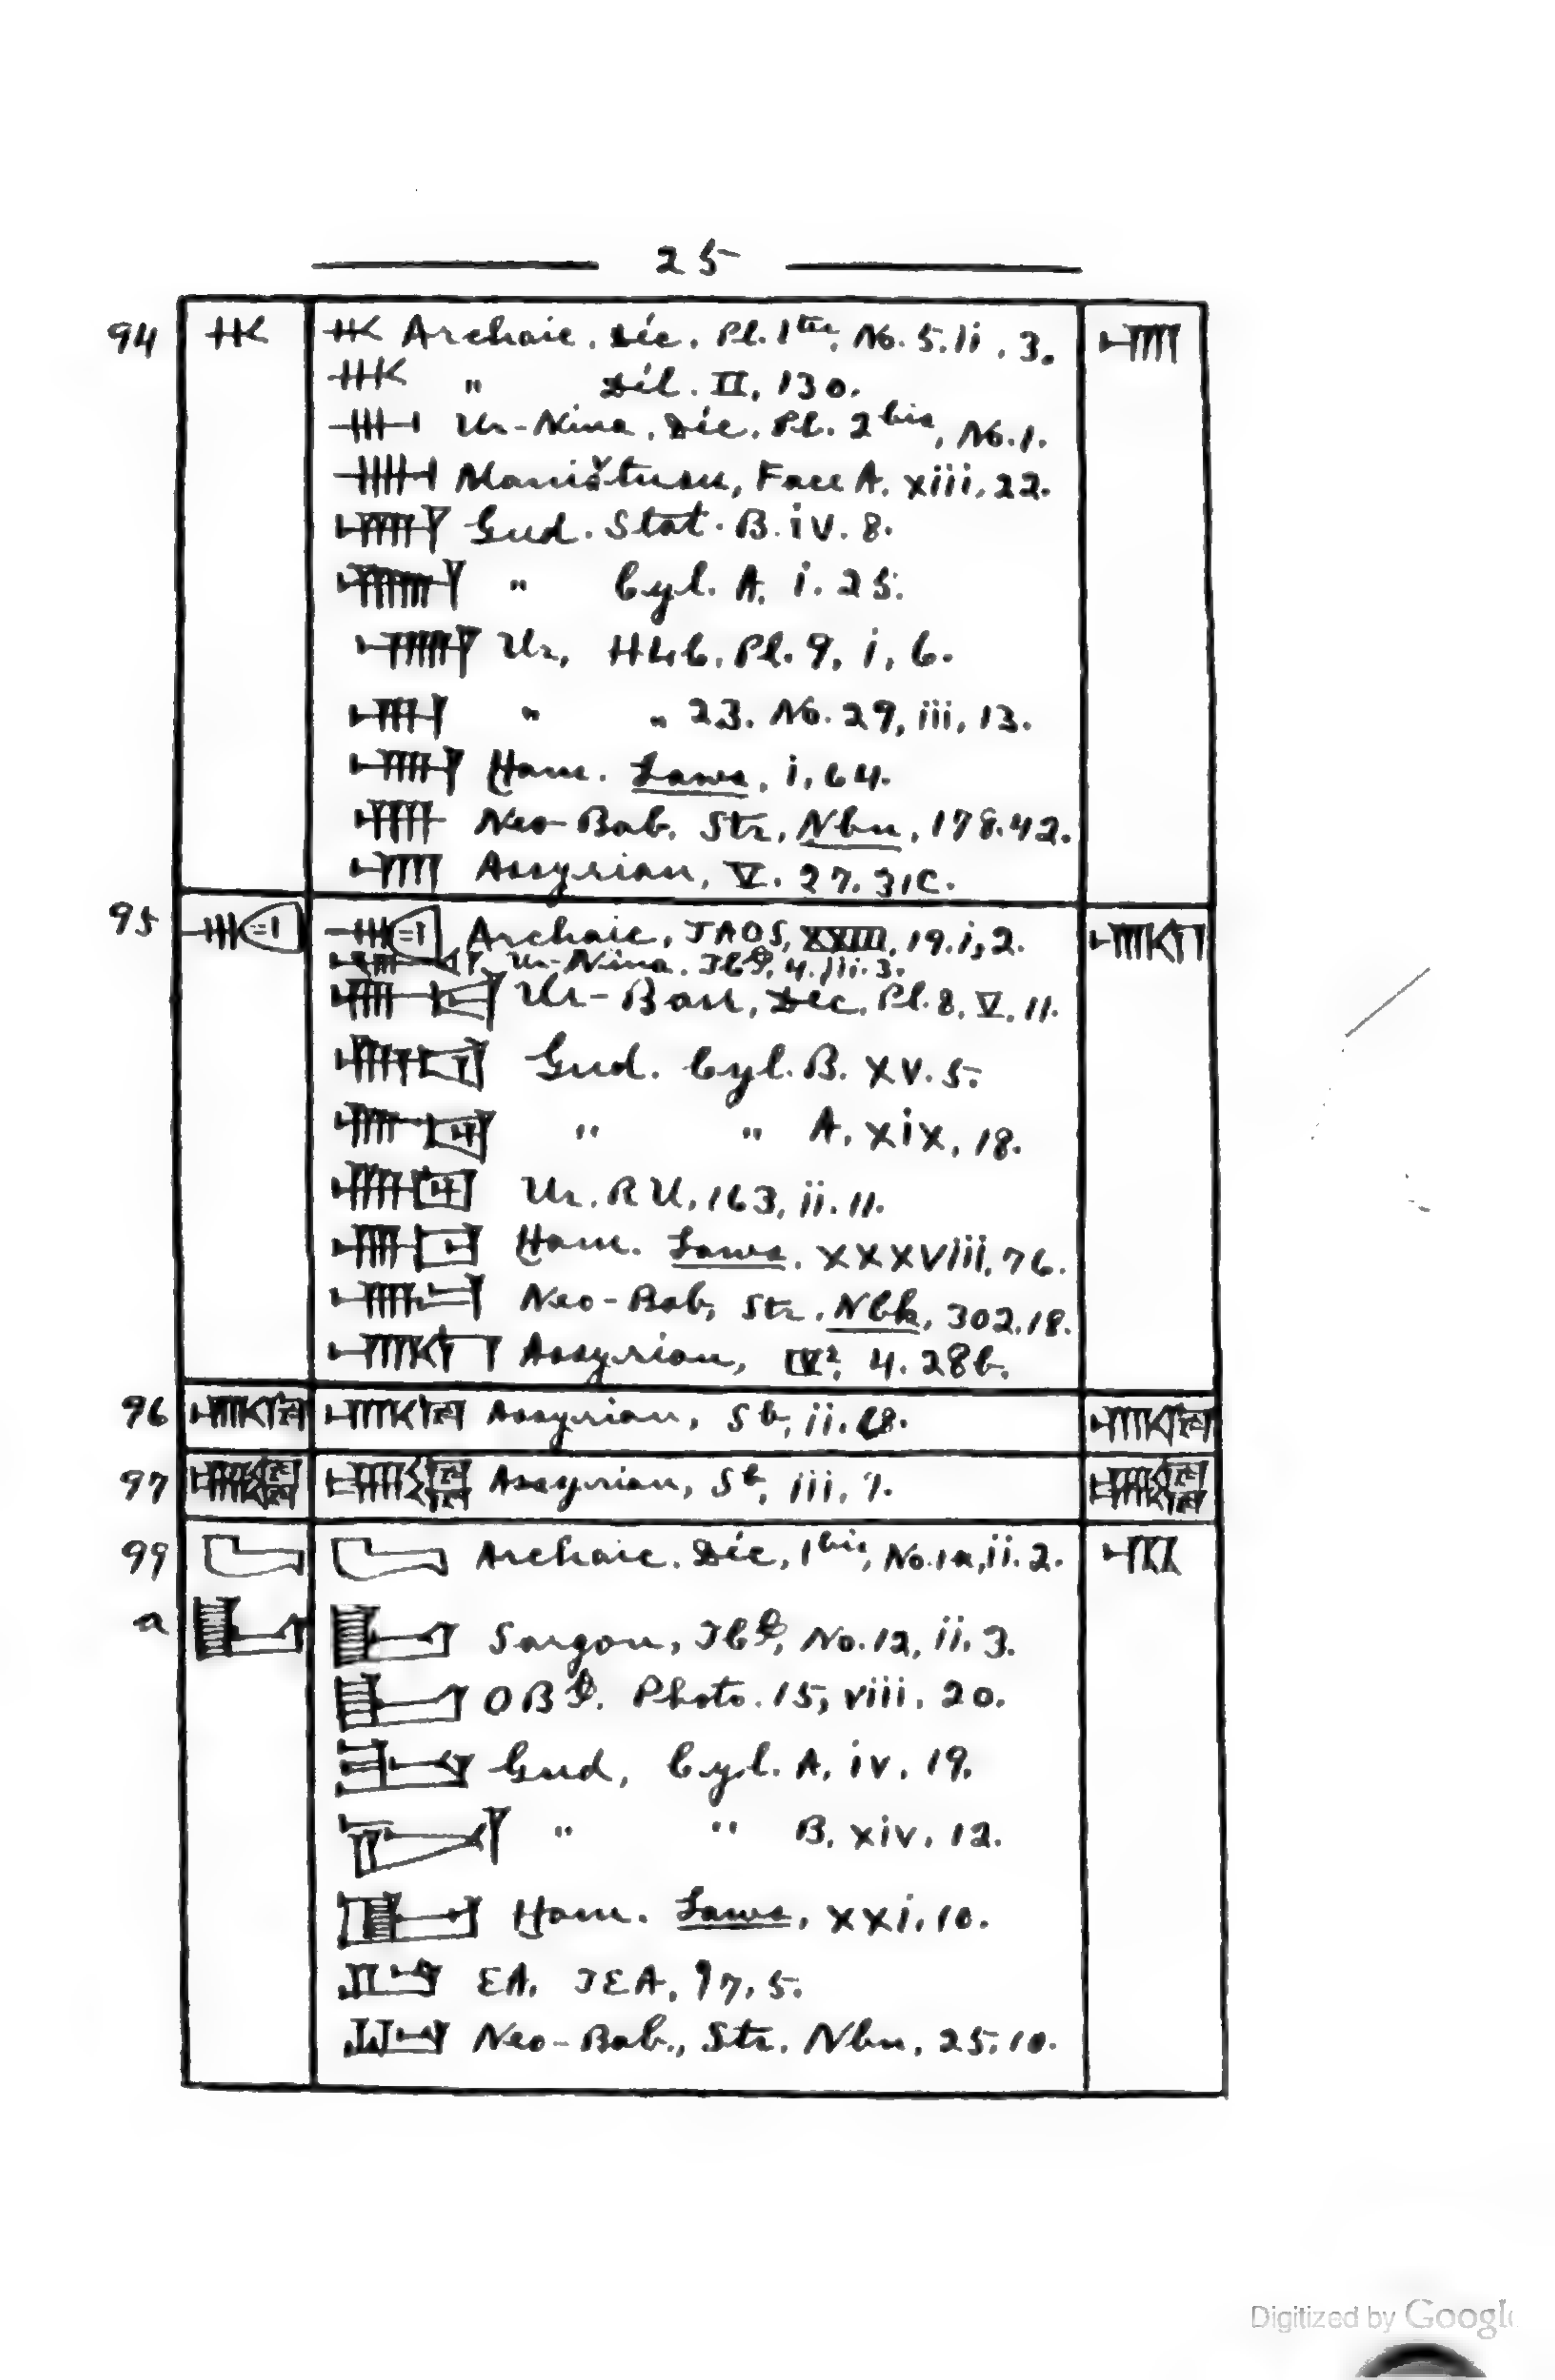 25
94 Archaic. Déc. Pl. 1ter, No. 5. ii. 3.
" Dél. II, 130.
Ur-Nina, Déc. Pl. 2bis, No. 1.
Maništusu, Face A. xiii, 22.
Gud. Stat. B. iv. 8.
" Cyl. A. i. 25.
Ur, HLC. Pl. 9, i, 6.
" " 23. No. 29, iii, 13.
Ham. Laws, i, 64.
Neo-Bab. Str, Nbn, 178.42.
Assyrian, V. 27. 31c.
95 Archaic, JAOS, XXIII, 19. i, 2.
Ur-Nina. 4. iii. 3.
Ur-Bau, Déc, Pl. 8, V. 11.
Gud. Cyl. B. XV. 5.
" " A. xix, 18.
Ur. RU, 163, ii. 11.
Ham. Laws. XXXViii, 76.
Neo-Bab, Str. Nbk, 302.18.
Assyrian, IV², 4. 28b.
96 Assyrian, Sb, ii.
97 Assyrian, Sb, iii, 7.
99 Archaic. Déc, 1bis, No. 1a, ii. 2.
a Sargon, No. 12, ii. 3.
Photo. 15, viii. 20.
Gud, Cyl. A, iv. 19.
" " B. xiv. 12.
Ham. Laws, XXi, 10.
EA. 97, 5.
Neo-Bab., Str. Nbn, 25.10.
Digitized by Google